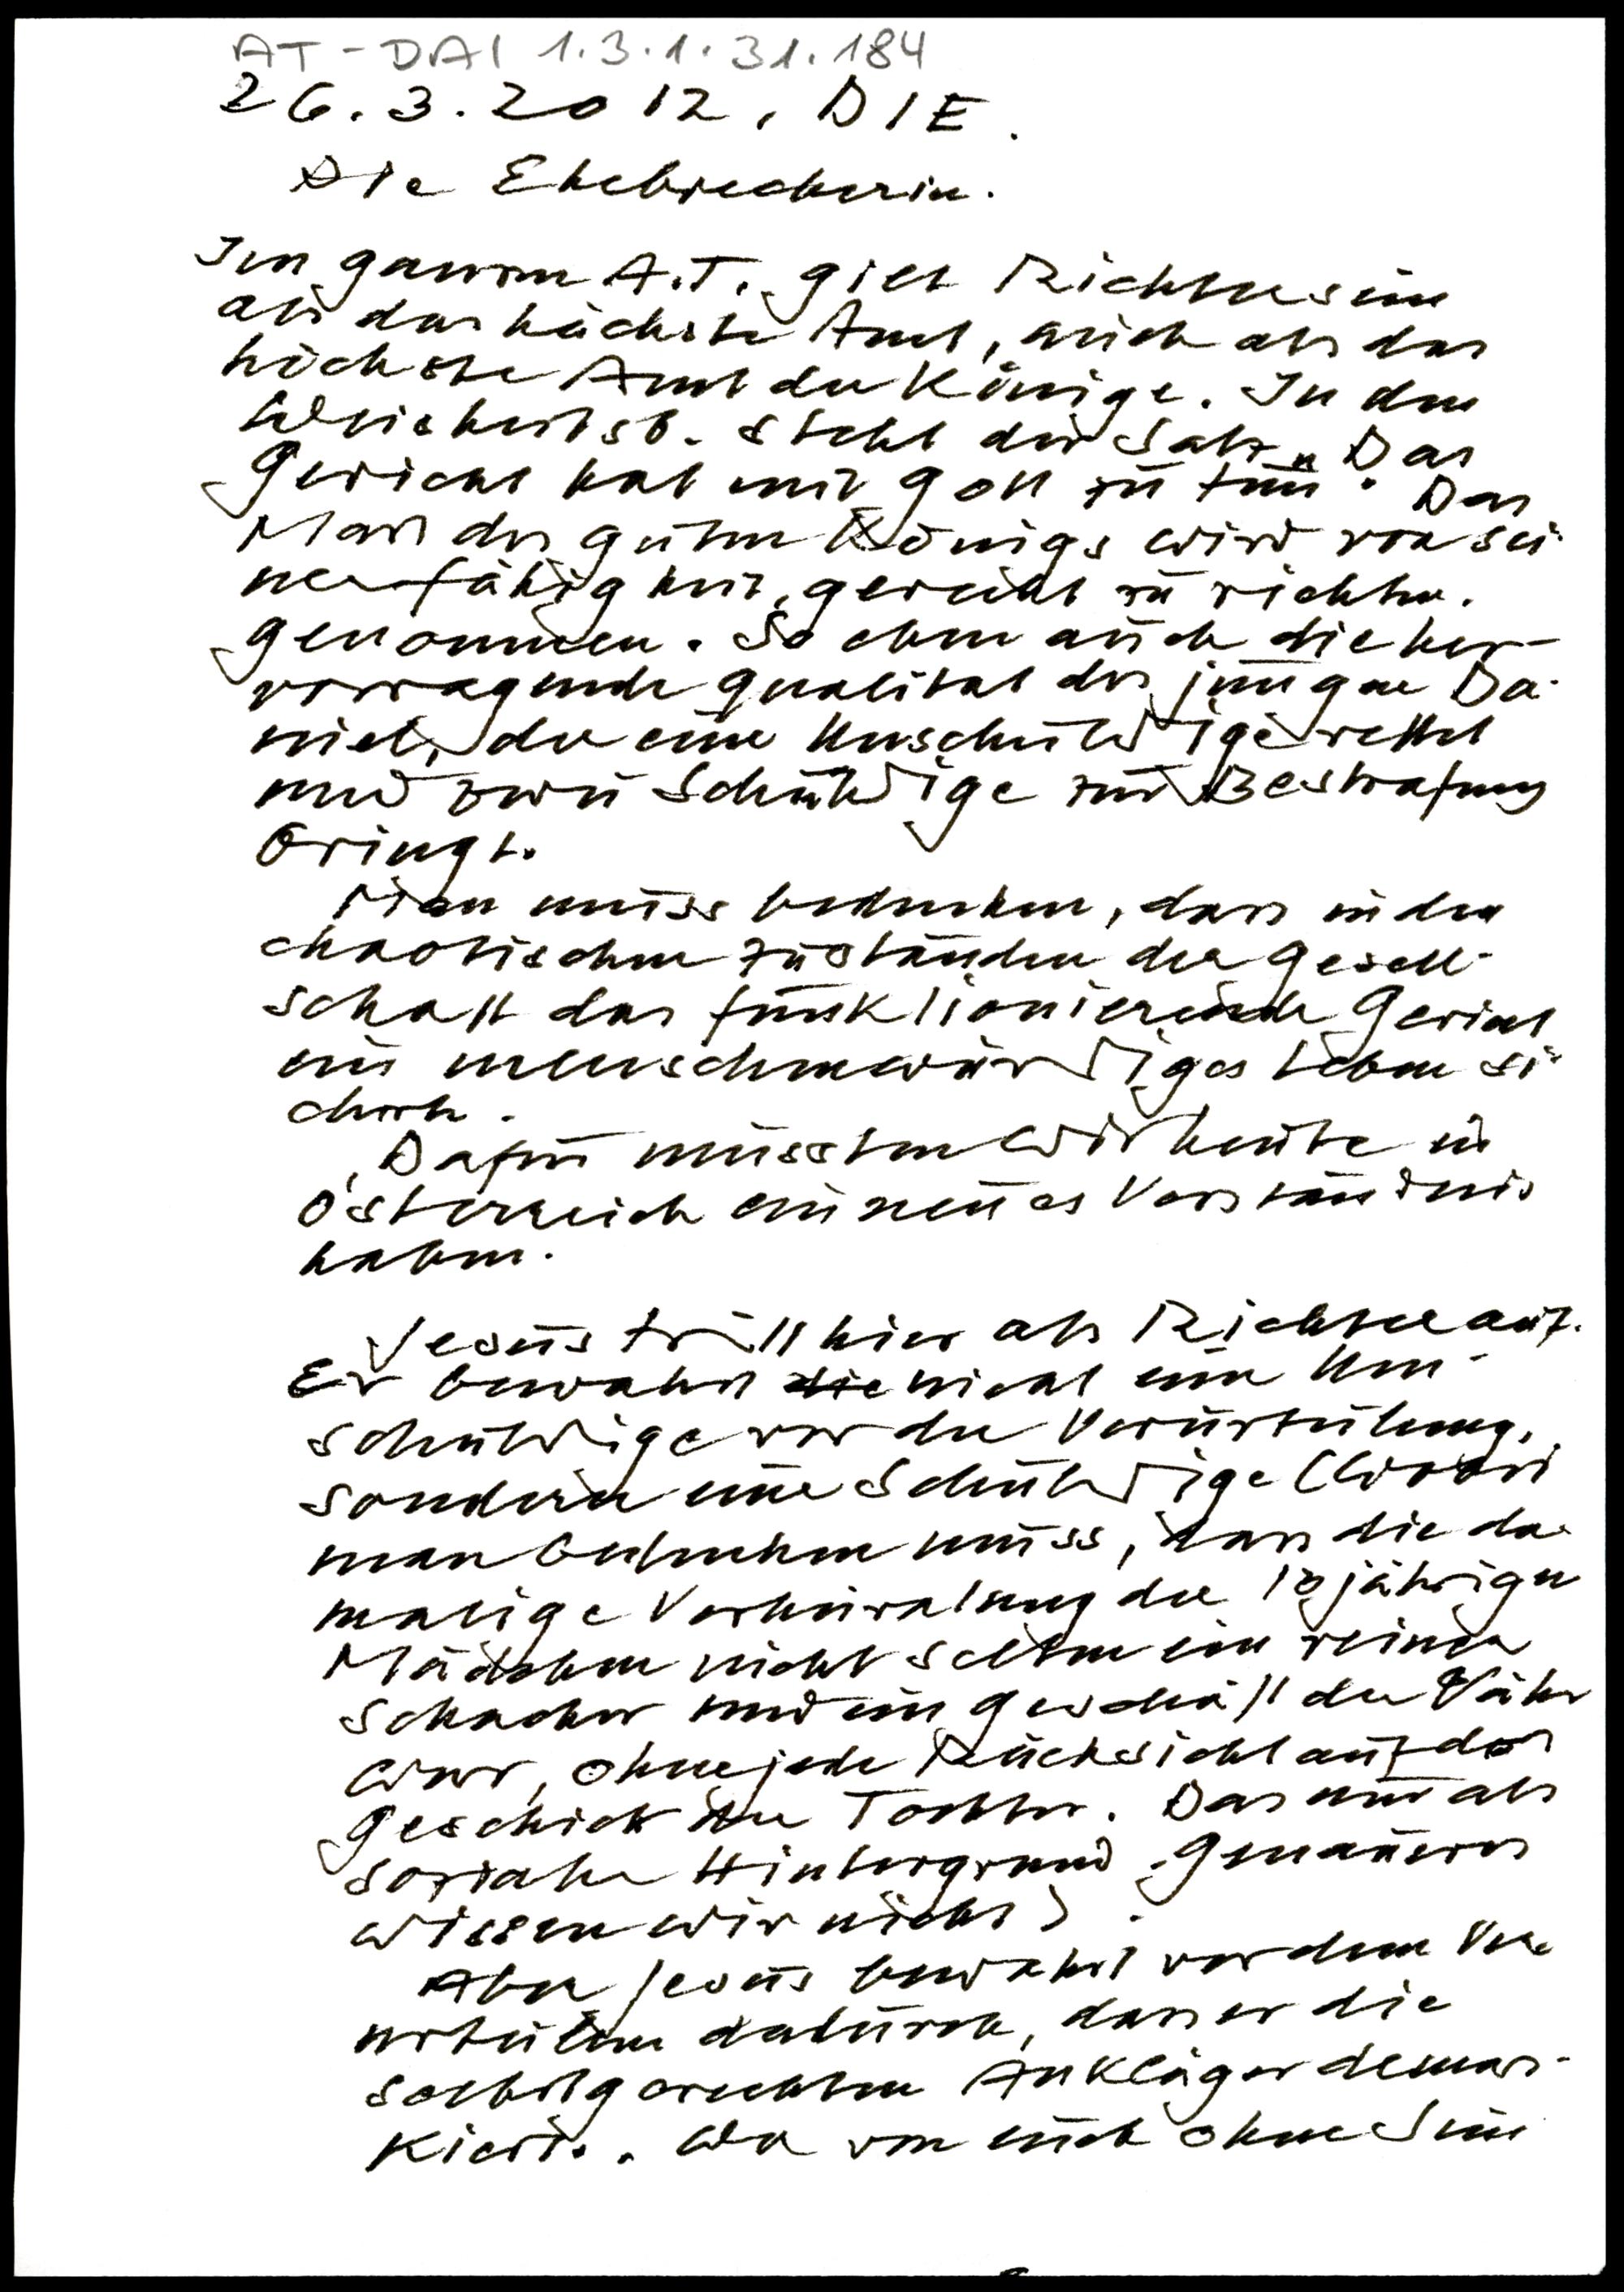 AT-DAI 1.3.1.31.184
26.3.2012, DIE.
Die Ehebrecherin.
Im ganzen A.T. gilt Richtersein
als das höchste Amt, auch als das
höchste Amt der Könige. In den
Weisheitsb. steht der Satz „Das
Gericht hat mit Gott zu tun". Das
Mass des guten Königs wird von sei-
ner Fähigkeit, gerecht zu richten.
genommen. So eben auch die her-
vorragende Qualität des jungen Da-
niel, der eine Unschuldige rettet
und zwei Schuldige zur Bestrafung
bringt.
Man muss bedenken, dass in den
chaotischen Zuständen der Gesell-
schaft das funktionierende Gericht
ein menschenwürdiges Leben si-
cherte.
Dafür müssten wir heute in
Österreich ein neues Verständnis
haben.
Jesus tritt hier als Richter auf.
Er bewahrt die nicht eine Un-
schuldige vor der Verurteilung,
sondern eine Schuldige (wobei
man bedenken muss, dass die da-
malige Verheiratung der jährigen
Mädchen nicht selten ein reiner
Schacher und ein Geschäft der Väter
war, ohne jede Rücksicht auf das
Geschick der Tochter. Das nur als
sozialer Hintergrund. Genaueres
wissen wir nicht).
Aber Jesus bewahrt vor dem Ver-
urteilen dadurch, dass er die
selbstgerechten Ankläger demas-
kiert. Wer von euch ohne Sün